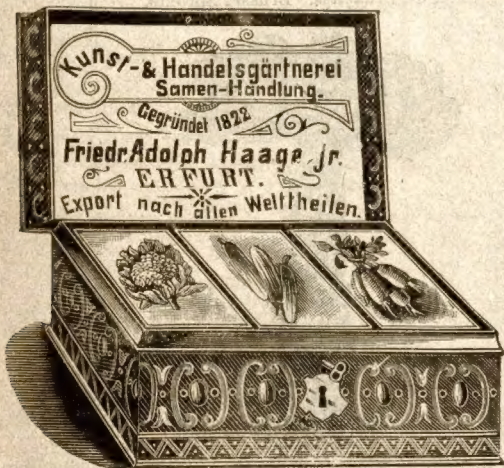 Kunst- & Handelsgärtnerei
Samen-Handlung.
Gegründet 1822
Friedr. Adolph Haage jr.
ERFURT.
Export nach allen Welttheilen.